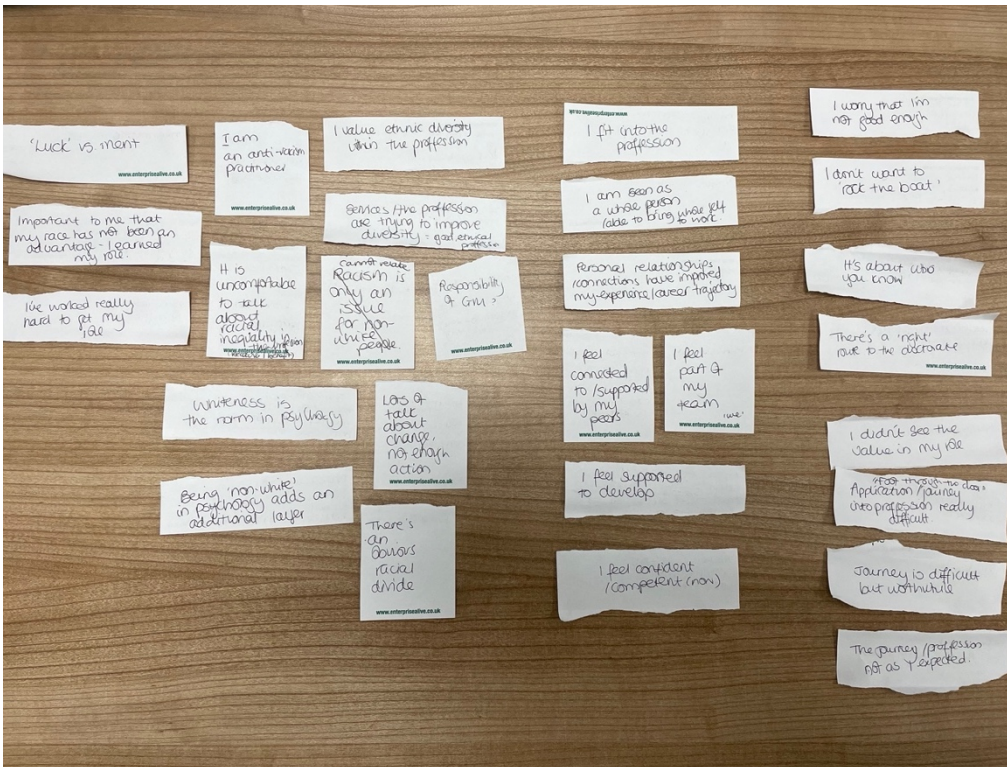 'Luck' vs. merit
www.enterprisealive.co.uk
Important to me that
my race has not been an
advantage - I earned
my role.
I've worked really
hard to get my
role
I am
an anti-racism
practitioner
www.enterprisealive.co.uk
It is
uncomfortable
to talk
about
racial
inequality in
the profession
www.enterprisealive.co.uk
I value ethnic diversity
within the proffession
Services/the proffession
are trying to improve
diversity = good ethical
proffession
cannot relate
Racism is
only an
issue
for non-
white
people.
www.enterprisealive.co.uk
Responsibility
of GM?
www.enterprisealive.co.uk
Whiteness is
the norm in psychology
Being 'non-white'
in psychology adds an
additional layer
Lots of
talk
about
change,
not enough
action
www.enterprisealive.co.uk
There's
an
obvious
racial
divide
www.enterprisealive.co.uk
www.enterprisealive.co.uk
I fit into the
proffession
I am seen as
a whole person
/able to bring whole self
to work.
Personal relationships
/connections have improved
my experience/career trajectory
I feel
connected
to/supported
by my
peers
www.enterprisealive.co.uk
I feel
part of
my
team
'we'
www.enterprisealive.co.uk
I feel supported
to develop
I feel confident
/competent (now)
I worry that I'm
not good enough
I don't want to
'rock the boat'
It's about who
you know
There's a 'right'
route to the doctorate
www.enterprisealive.co.uk
I didn't see the
value in my role
'Foot through the door'
Application/journey
into profession really
difficult.
Journey is difficult
but worthwhile
The journey/proffession
not as I expected.